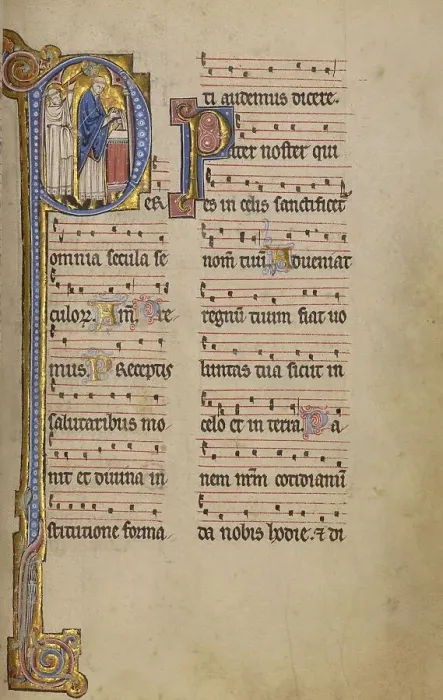 PER
omnia secula se
culoꝝ. Am̄. Ore
mus. P Receptis
salutaribus mo
nit et diuina in
stitutione forma
ti audemus dicere.
Pater noster qui
es in celis sanctificet᷑
nom̄ tuū. Adueniat
regnū tuum fiat uo
luntas tua sicut in
celo et in terra. Pa
nem nr̄m cotidianū
da nobis hodie. ⁊ di